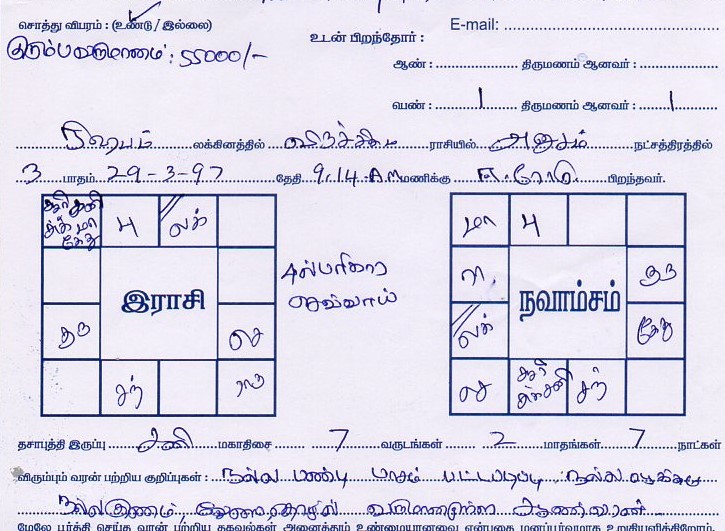 சொத்து விபரம் : (உண்டு / இல்லை)
E-mail:
குடும்ப வருமானம் : 55000/-
உடன் பிறந்தோர் :
ஆண் : திருமணம் ஆனவர் :
பெண் : 1 திருமணம் ஆனவர் : 1
ரிஷபம் லக்கினத்தில் விருச்சிகம் ராசியில் அனுசம் நட்சத்திரத்தில்
3 பாதம் 29-3-97 தேதி 9.14 A.M மணிக்கு ஈரோடு பிறந்தவர்.
சூரி சனி
சுக் மா
கேது
பு
லக்
இராசி
குரு
செ
சந்
ராகு
பரிகார
செவ்வாய்
மா
பு
ரா
குரு
நவாம்சம்
லக்
கேது
செ
சூரி
சுக் சனி
சந்
தசாபுத்தி இருப்பு சனி மகாதிசை 7 வருடங்கள் 2 மாதங்கள் 7 நாட்கள்
விரும்பும் வரன் பற்றிய குறிப்புகள் : நல்ல பண்பு பாசம் பட்டபடிப்பு நல்ல
நல்ல குணம், வருமானமுள்ள
மேலே பூர்த்தி செய்த வரன் பற்றிய தகவல்கள் அனைத்தும் உண்மையானவை என்பதை மனப்பூர்வமாக உறுதியளிக்கிறோம்.